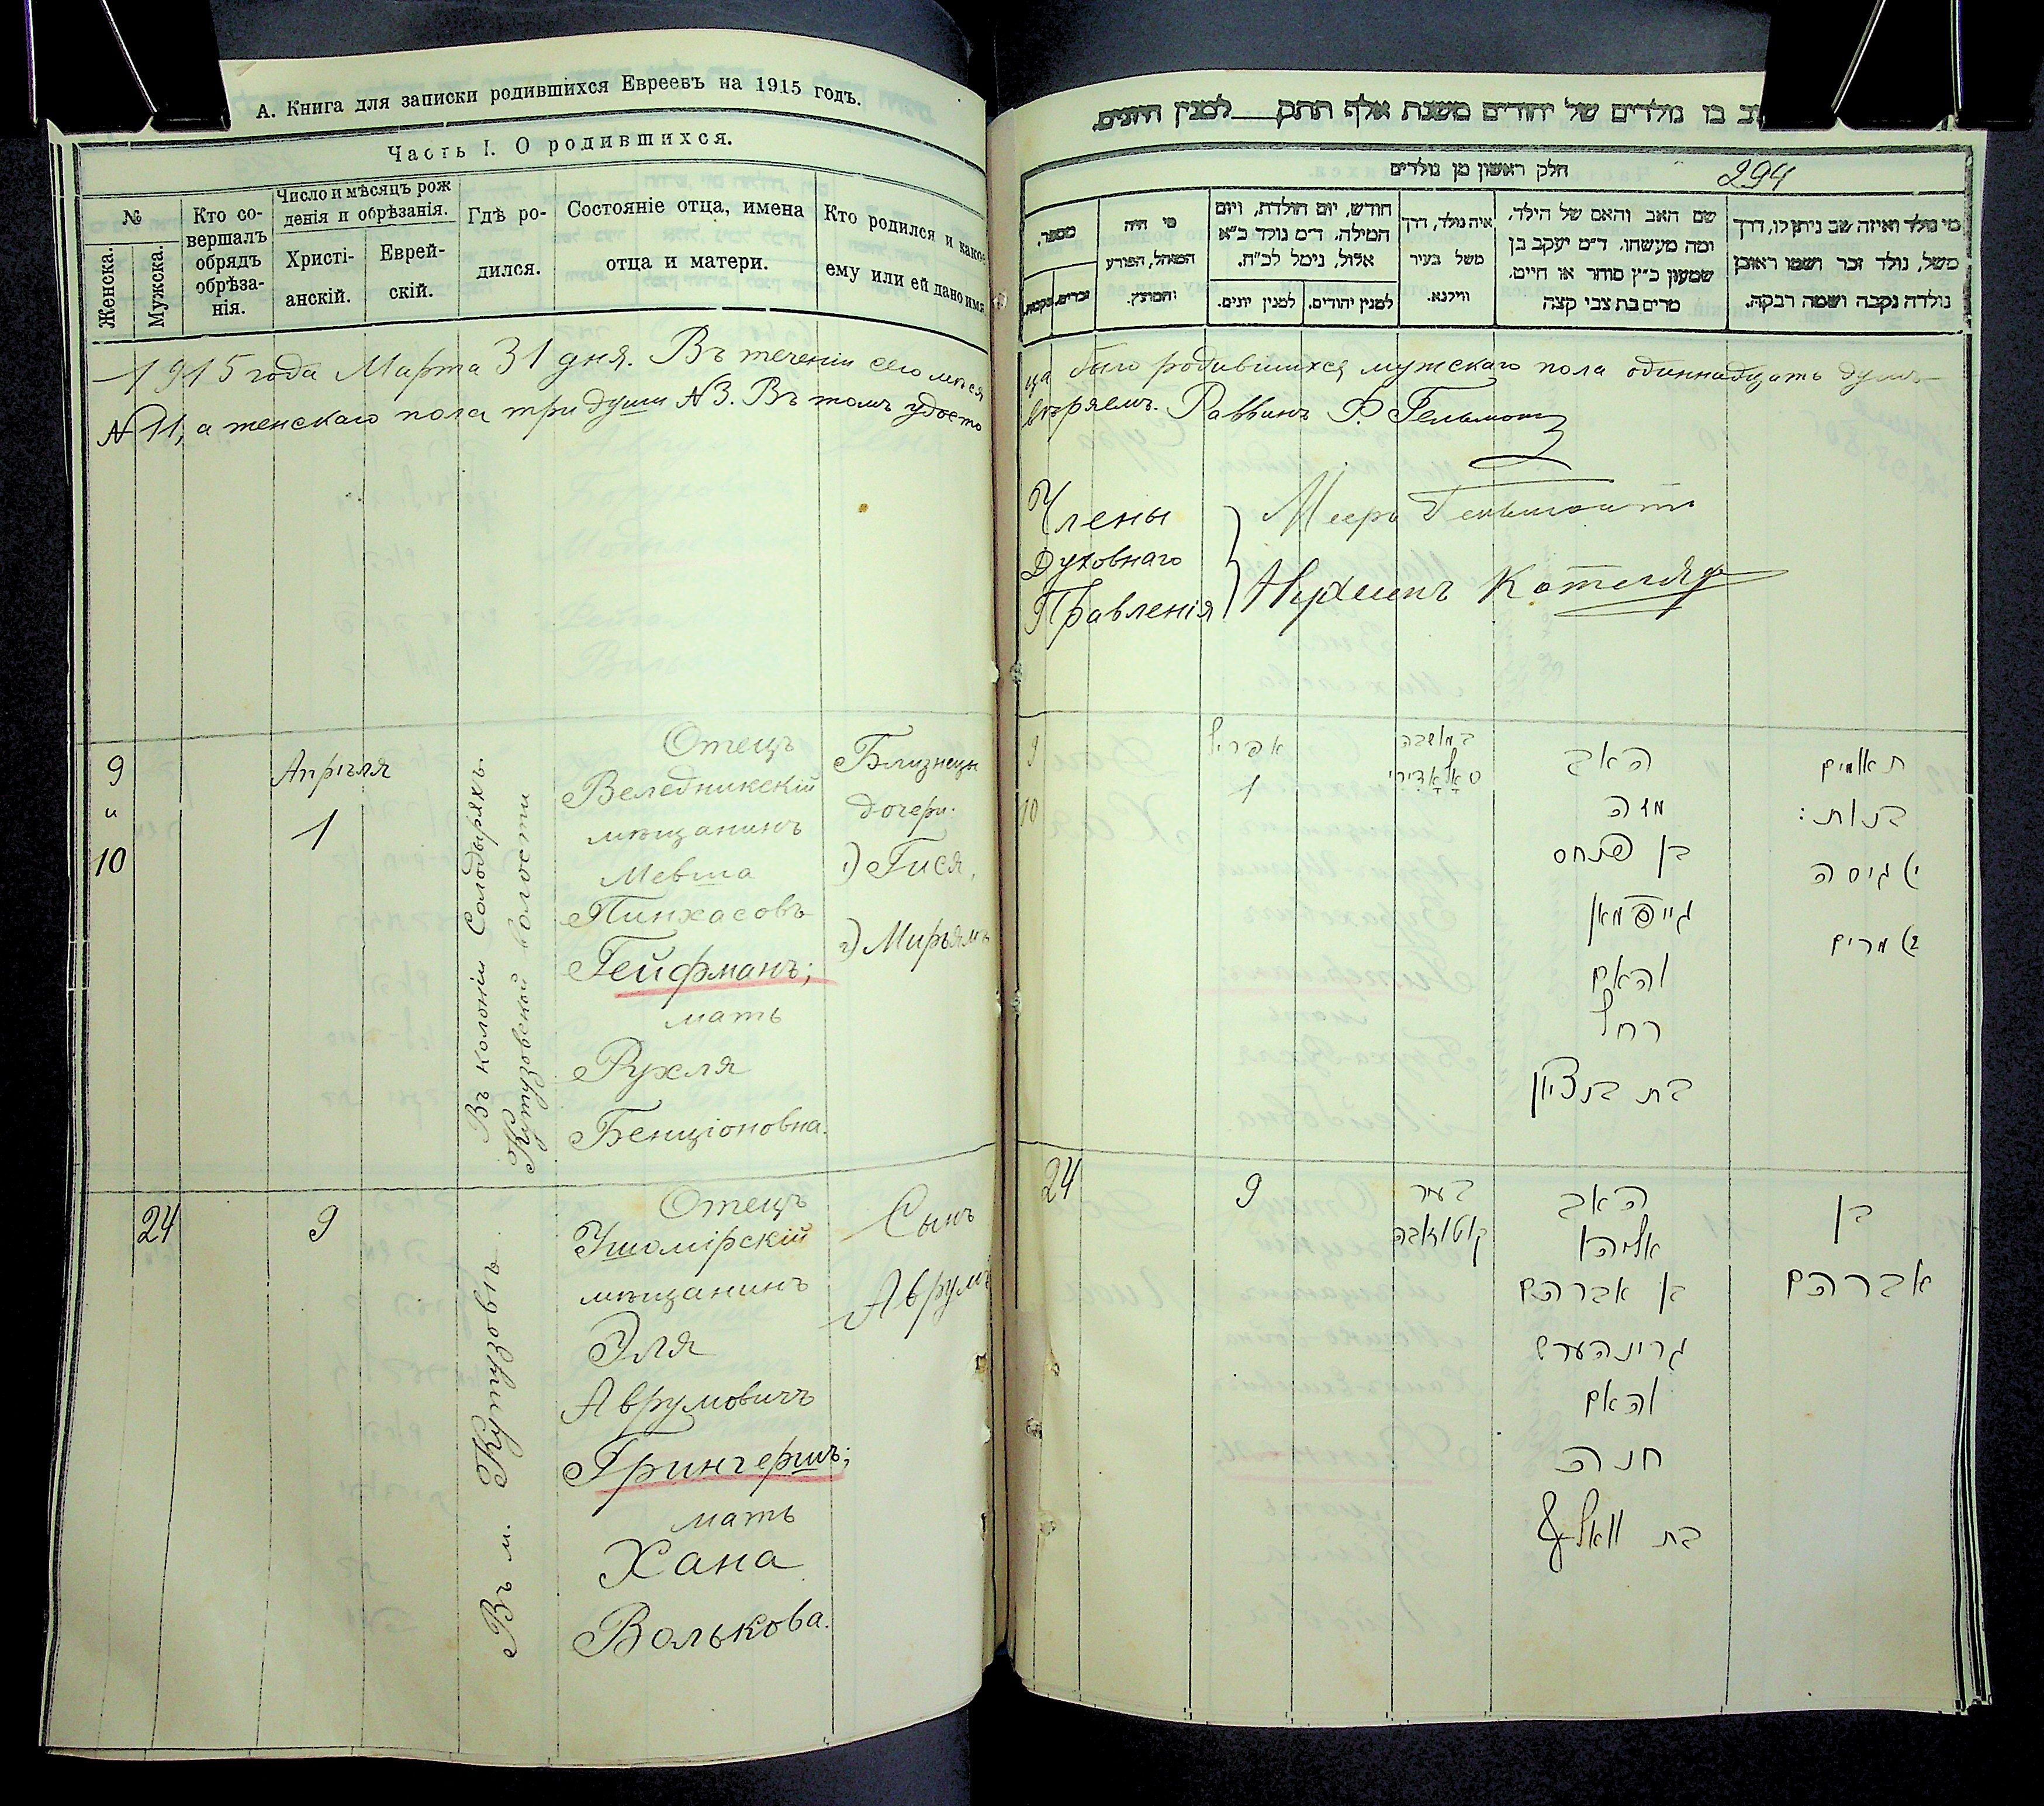 А. Книга для записки родившихся Евреевъ на 1915 годъ.
Часть I. О родившихся.
№
Женска.
Мужска.
Кто со-
вершалъ
обрядъ
обрѣза-
нія.
Число и мѣсяцъ рож
денія и обрѣзанія.
Христі-
анскій.
Еврей-
скій.
Гдѣ ро-
дился.
Состояніе отца, имена
отца и матери.
Кто родился и какое
ему или ей дано имя
1915 года Марта 31 дня. Въ теченіи сего мѣся
№ 11, а женскаго пола три души № 3. Въ томъ удосто
9
и
10
Апрѣля
1
Въ колоніи Солодыряхъ.
Кутузовской волости
Отецъ
Веледникскій
мѣщанинъ
Мевша
Пинхасовъ
Гейфманъ;
мать
Рухля
Бенціоновна.
Близнецы
дочери.
1) Гися,
2) Мирьямъ
24
9
Въ м. Кутузовѣ
Отецъ
Ушомірскій
мѣщанинъ
Эля
Аврумовичъ
Грингершъ;
мать
Хана
Волькова.
Сынъ
Аврумъ
בו נולדים של יהודים משנת אלף תתק למנין היונים.
חלק ראשון מן נולדים
294
מספר,
זכרים.
נקבות.
מי היה
המוהל, הפורע
והמוצץ.
חודש, יום הולדת, ויום
המילה. ד״מ נולד כ״א
אלול, נימל לכ״ח.
למנין יהודים.
למנין יונים.
איה נולד, דרך
משל בעיר
ווילנא.
שם האב והאם של הילד,
ומה מעשהו. ד״מ יעקב בן
שמעון כ״ץ סוחר או חייט.
מרים בת צבי קצה
מי נולד ואיזה שם ניתן לו, דרך
משל, נולד זכר ושמו ראובן
נולדה נקבה ושמה רבקה.
ца было родившихся мужскаго пола одиннадцать душъ
вѣряемъ. Раввинъ Ф. Гельманъ
Члены
Духовнаго
Правленія
Мееръ
9
10
אפריל
1
במושבה
האב
משה
בן פנחס
גייפמאן
והאם
רחל
בת בנציון
תאומים
בנות:
א) גיסה
ב) מרים
24
9
בעיר
קוטוזאבה
האב
אליהו
בן אברהם
גרינהערש
והאם
חנה
בת וואלף
בן
אברהם